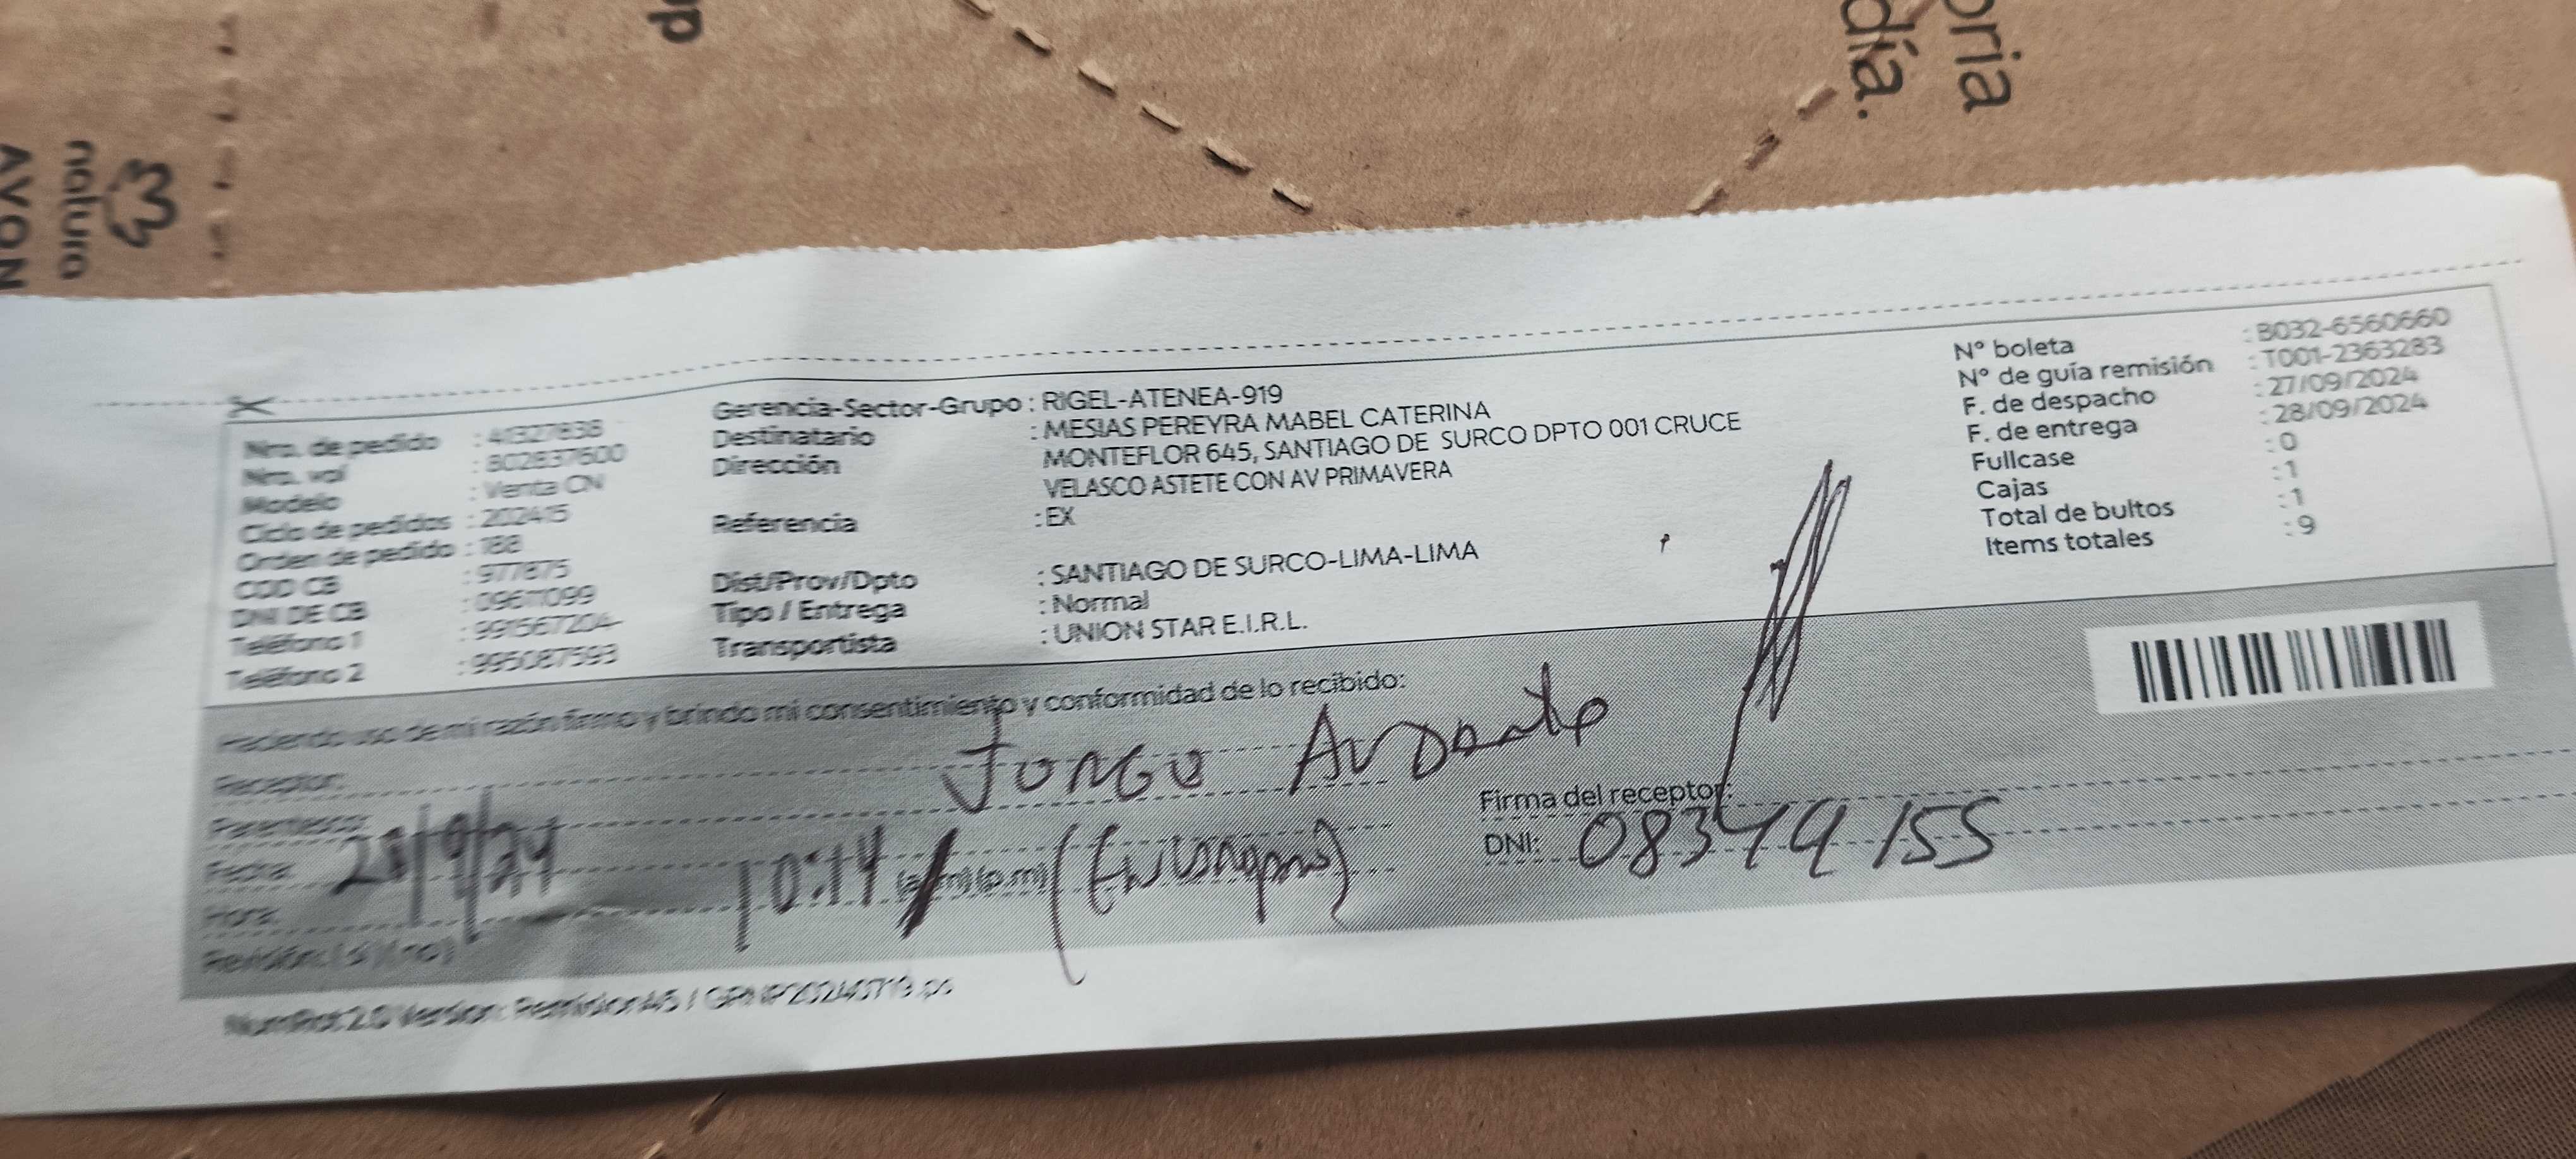 op
oria
día.
natura
AVON
Nro. de pedido : 41327838
Nro. vol : 802837600
Modelo : Venta CN
Ciclo de pedidos : 202415
Orden de pedido : 188
COD CB : 977875
DNI DE CB : 09611099
Teléfono 1 : 991567204-
Teléfono 2 : 995087593
Gerencia-Sector-Grupo : RIGEL-ATENEA-919
Destinatario : MESIAS PEREYRA MABEL CATERINA
Dirección : MONTEFLOR 645, SANTIAGO DE SURCO DPTO 001 CRUCE
VELASCO ASTETE CON AV PRIMAVERA
Referencia : EX
Dist/Prov/Dpto : SANTIAGO DE SURCO-LIMA-LIMA
Tipo / Entrega : Normal
Transportista : UNION STAR E.I.R.L.
N° boleta : B032-6560660
N° de guía remisión : T001-2363283
F. de despacho : 27/09/2024
F. de entrega : 28/09/2024
Fullcase : 0
Cajas : 1
Total de bultos : 1
Items totales : 9
Haciendo uso de mi razón firmo y brindo mi consentimiento y conformidad de lo recibido:
Receptor: Jorge
Parentesco:
Fecha: 28/9/24
Hora: 10:14 (a.m) (p.m)
Revisión: (si) (no)
Firma del receptor:
DNI: 08349155